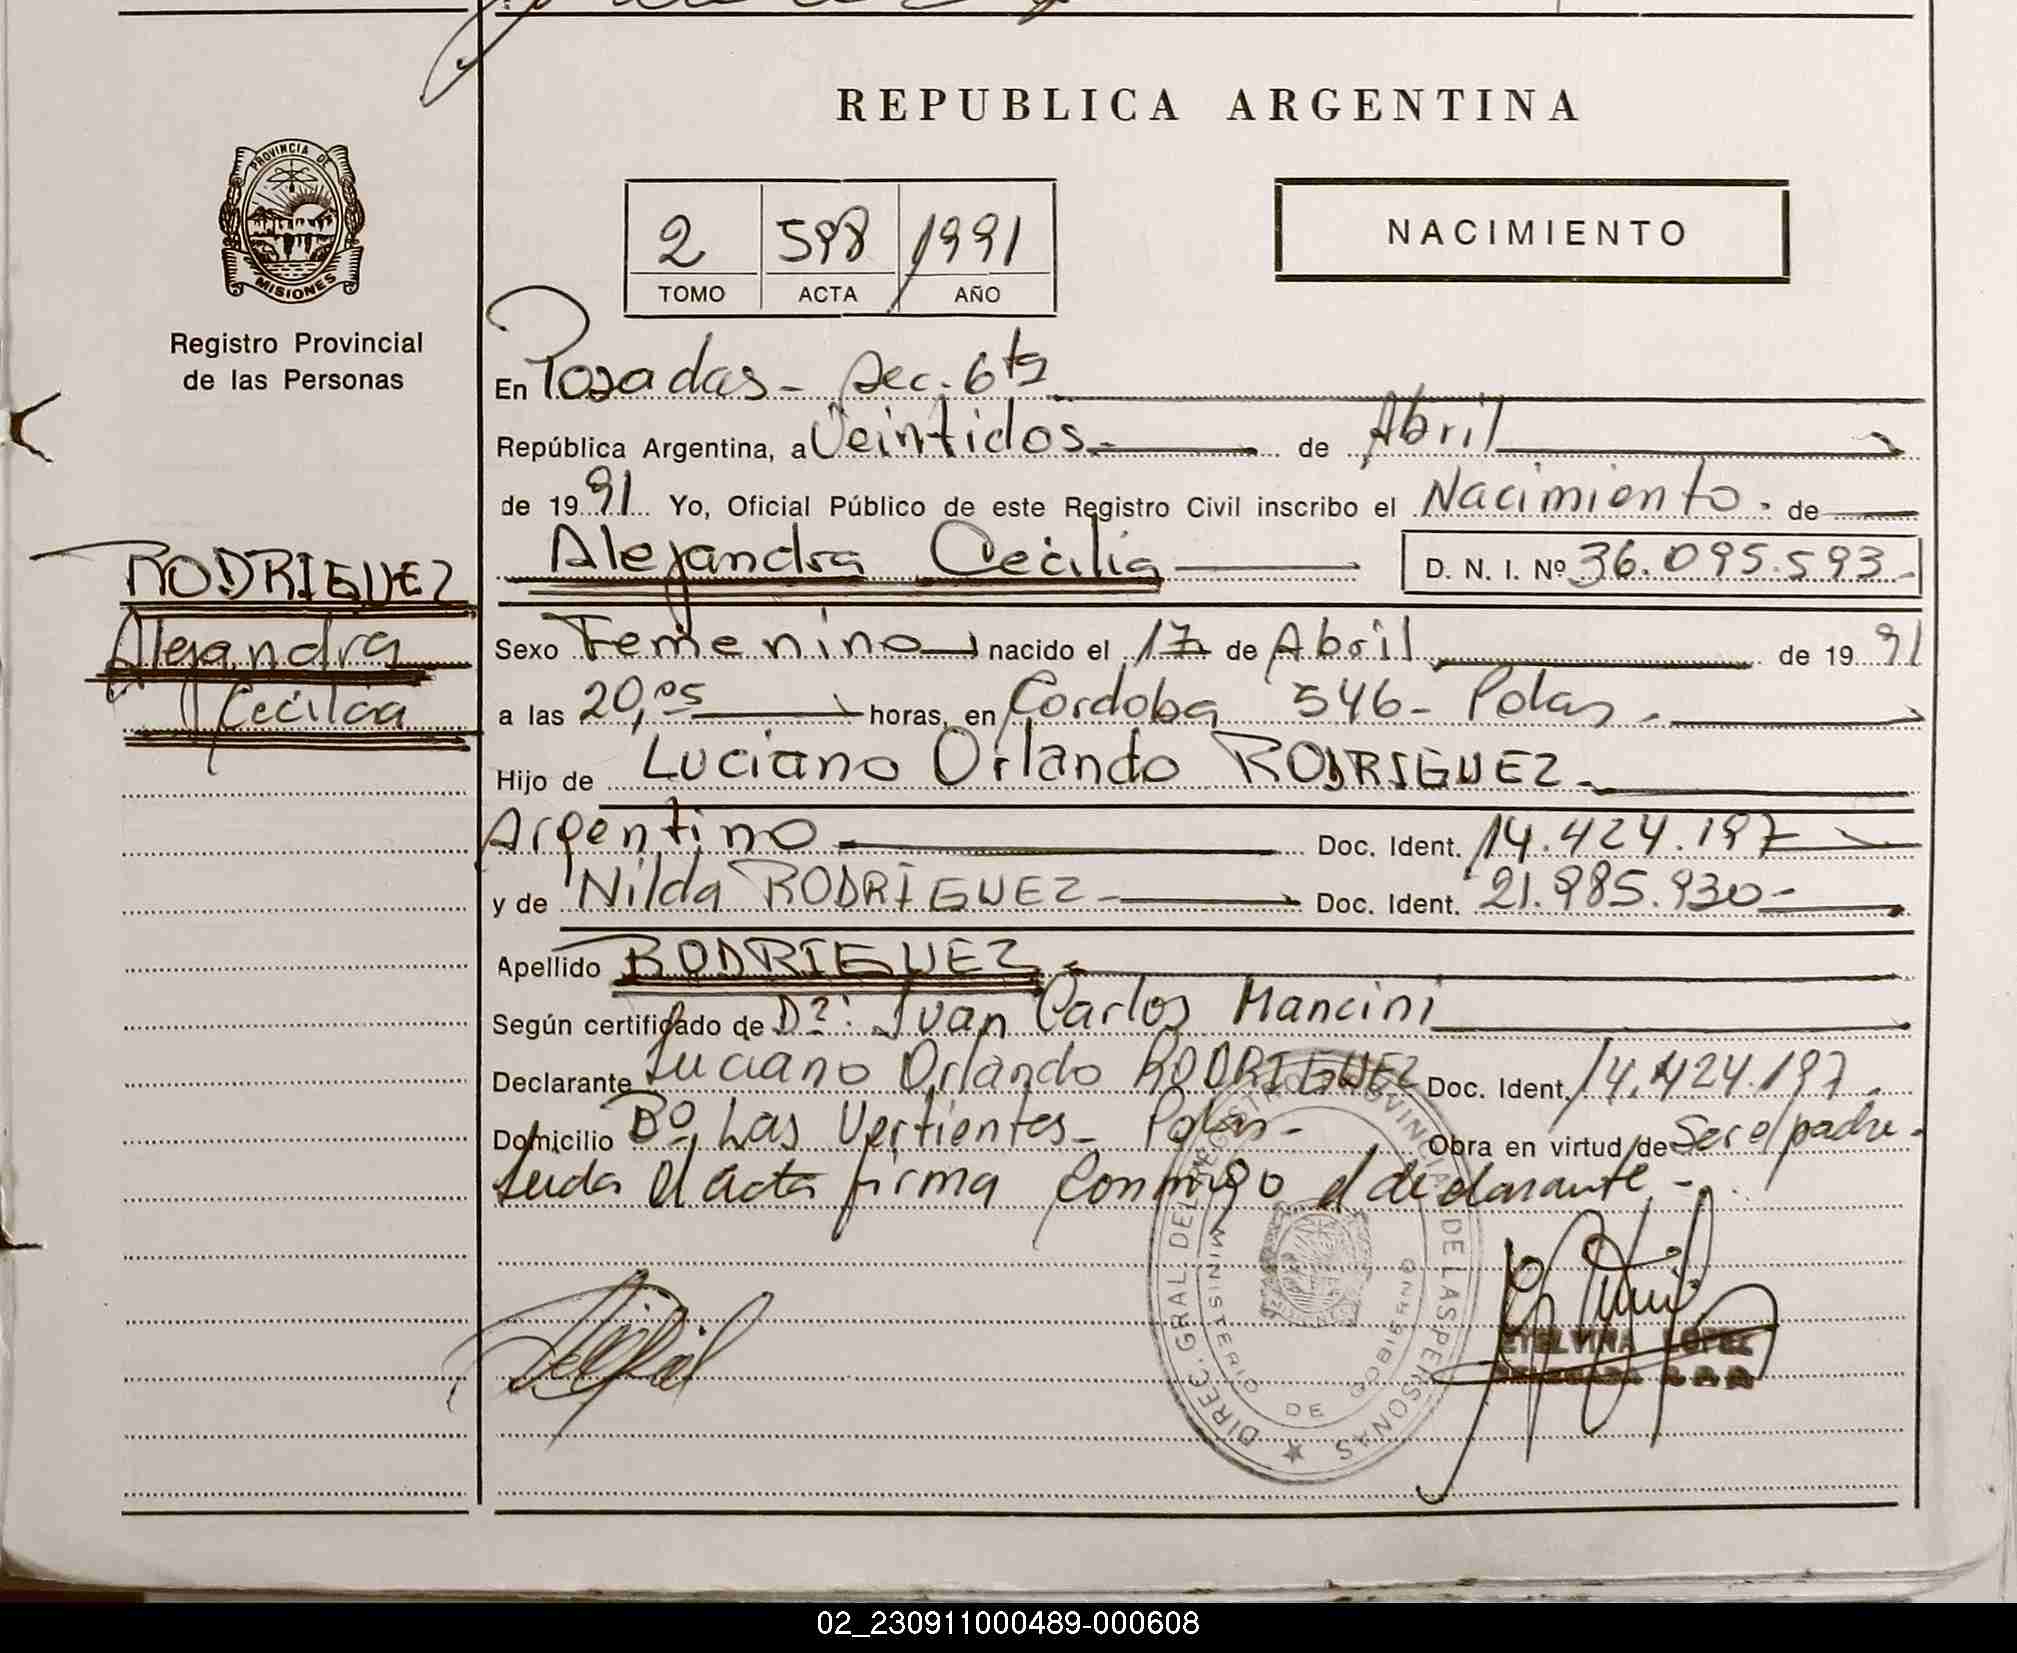 REPUBLICA ARGENTINA
PROVINCIA DE
MISIONES
Registro Provincial
de las Personas
2 598 1991
TOMO ACTA AÑO
NACIMIENTO
En Posadas - Sec. 6ta
República Argentina, a Veintidos.- de Abril
de 1991 Yo, Oficial Público de este Registro Civil inscribo el Nacimiento. de
Alejandra Cecilia D. N. I. Nº 36.095.593.-
RODRIGUEZ
Alejandra
Cecilia
Sexo Femenino nacido el 17 de Abril de 1991
a las 20,05 horas, en Cordoba 546 - Pdas.-
Hijo de Luciano Orlando RODRIGUEZ.-
Argentino.- Doc. Ident. 14.424.197
y de Nilda RODRIGUEZ.- Doc. Ident. 21.985.930.-
Apellido RODRIGUEZ.-
Según certificado de Dr: Juan Carlos Mancini
Declarante Luciano Orlando RODRIGUEZ Doc. Ident. 14.424.197.
Domicilio Bº Las Vertientes - Pdas.- Obra en virtud de Ser el padre.
Leida el acta firma conmigo el declarante.-
DIREC. GRAL DEL REGISTRO PROVINCIAL DE LAS PERSONAS
MINISTERIO DE GOBIERNO
ETELVINA LOPEZ
02_230911000489-000608